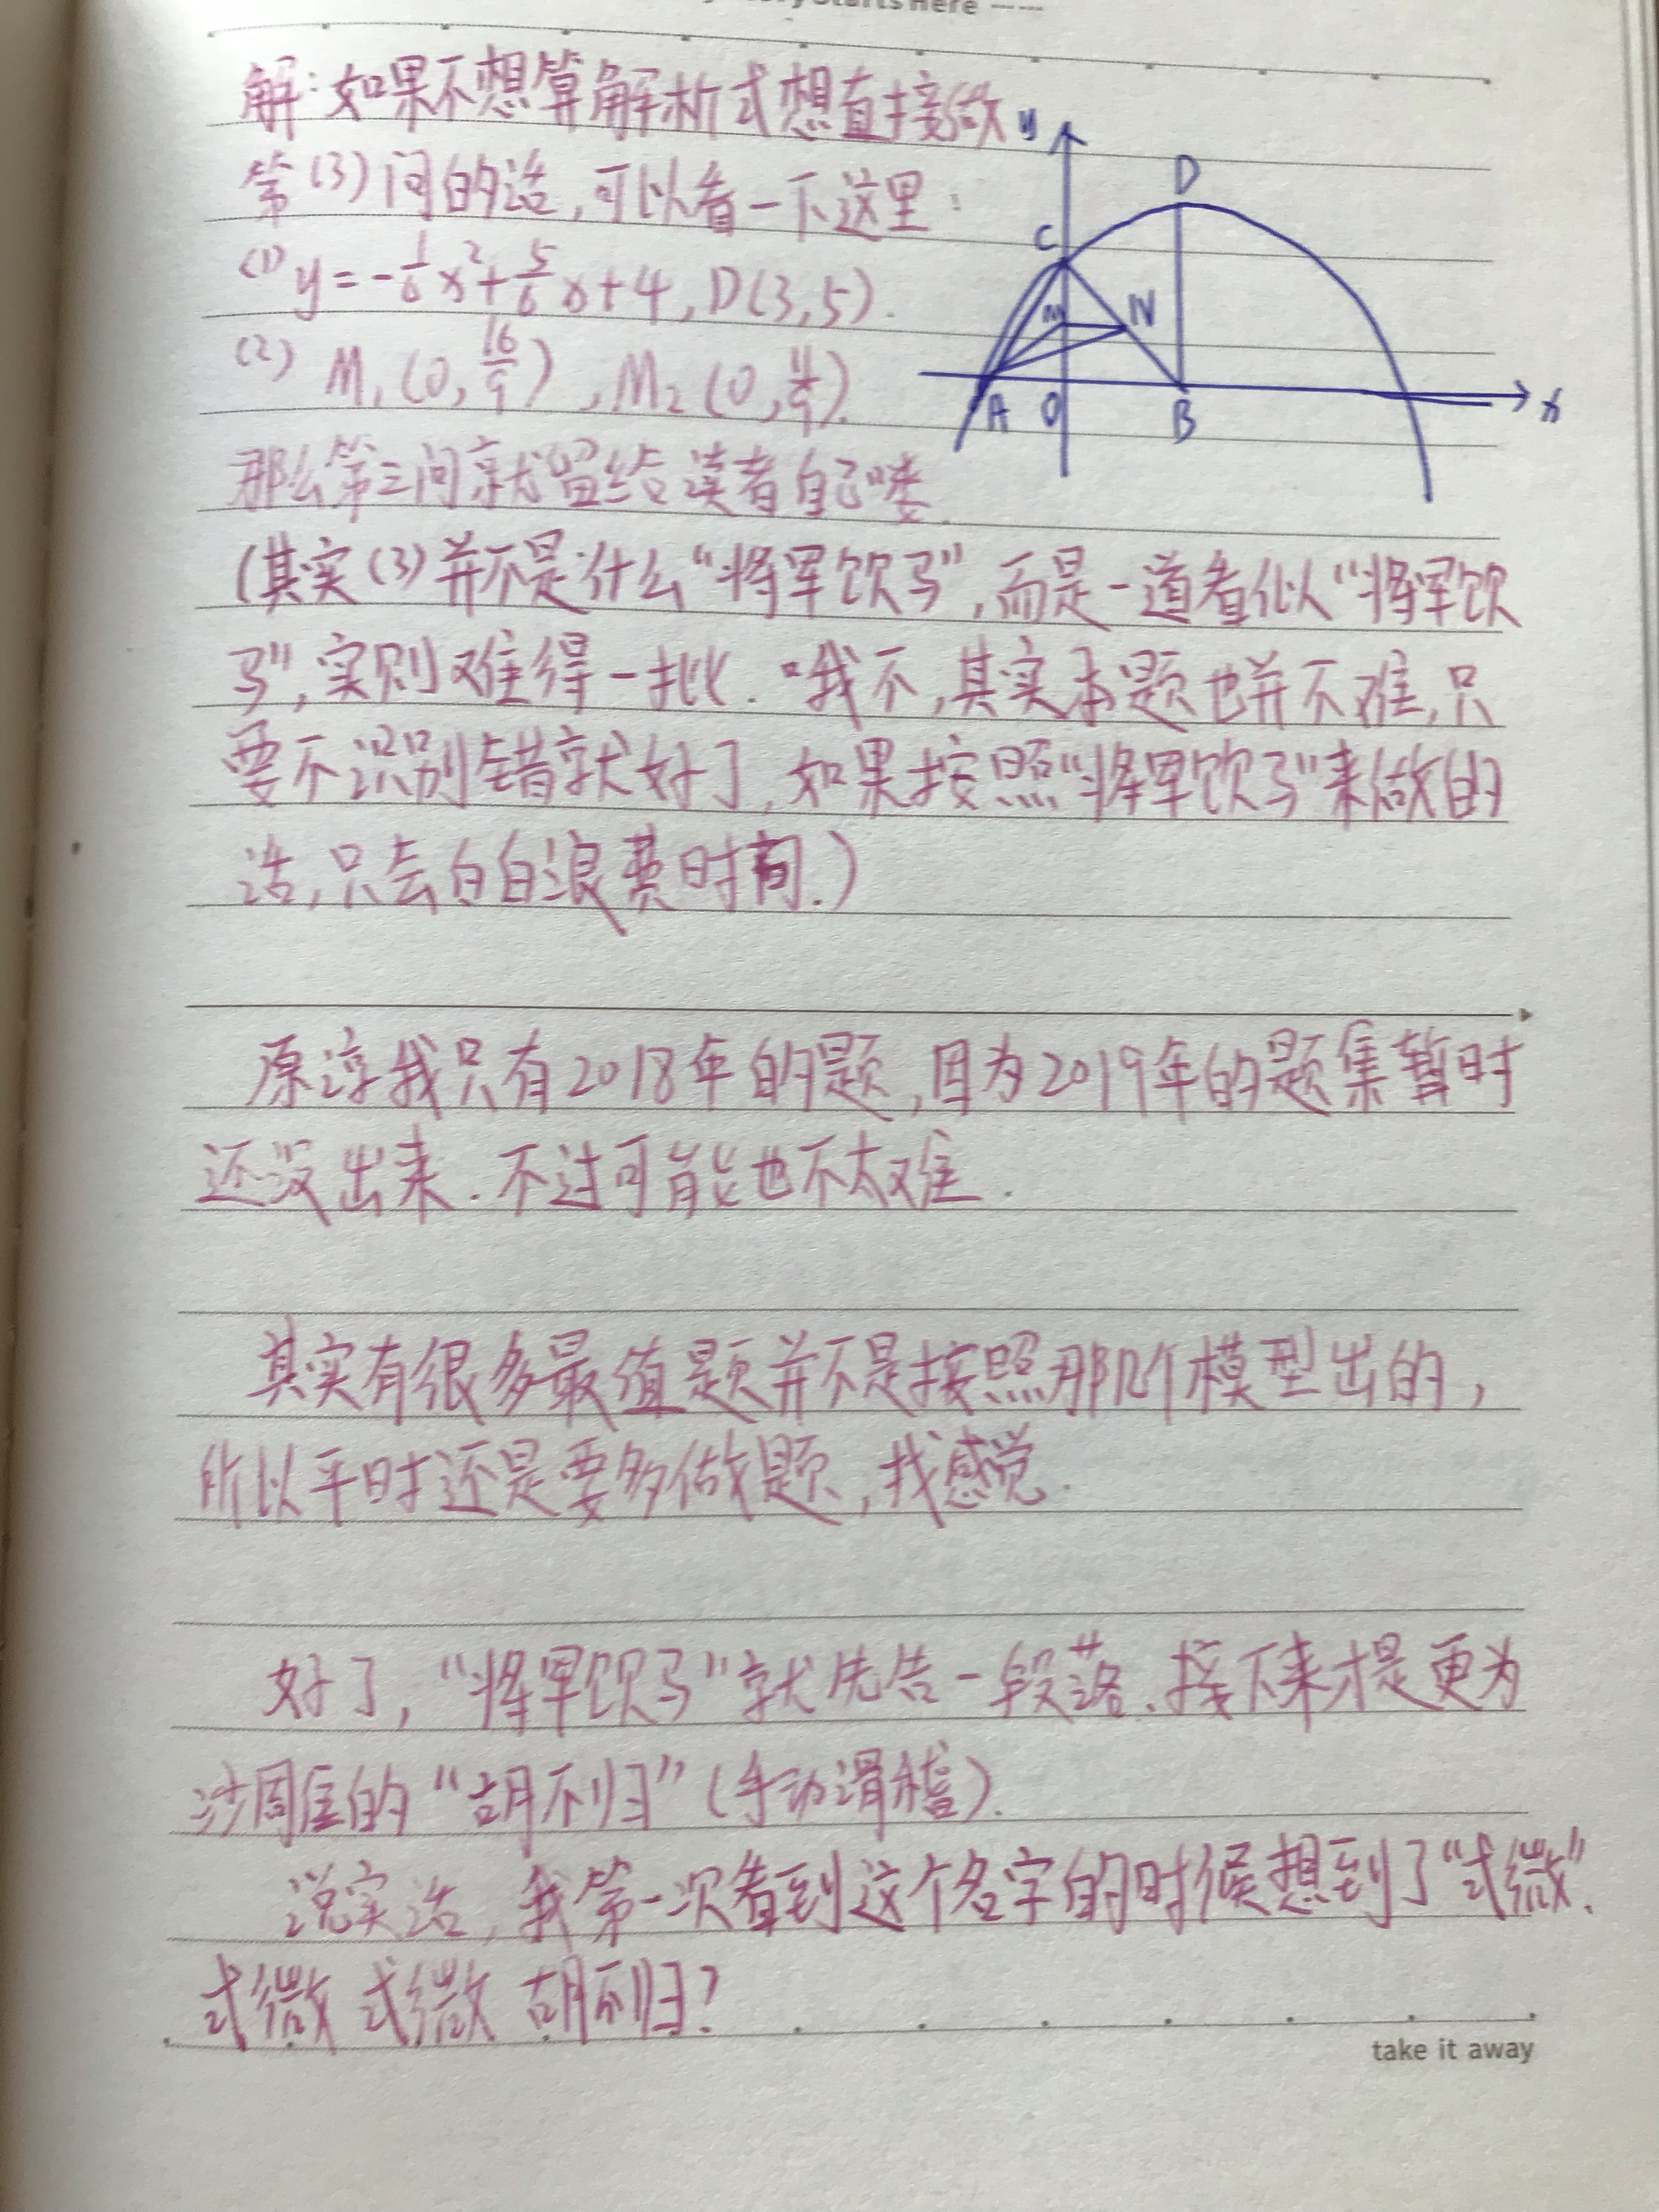 Starts Here ------
解:如果不想算解析式想直接做
第(3)问的话,可以看一下这里:
(1) y=-1/6x²+5/6x+4, D(3,5).
(2) M₁(0,16/9), M₂(0,11/9).
那么第三问就留给读者自己喽.
(其实(3)并不是什么“将军饮马”,而是一道看似“将军饮
马”,实则难得一批.哦不,其实本题也并不难,只
要不识别错就好了,如果按照“将军饮马”来做的
话,只会白白浪费时间.)
原谅我只有2018年的题,因为2019年的题集暂时
还没出来.不过可能也不太难.
其实有很多最值题并不是按照那几个模型出的,
所以平时还是要多做题,找感觉.
好了,“将军饮马”就先告一段落.接下来才是更为
沙周鱼的“胡不归”(手动滑稽).
说实话,我第一次看到这个名字的时候想到了“式微”.
式微 式微 胡不归?
take it away
y
D
C
M
N
A
O
B
x